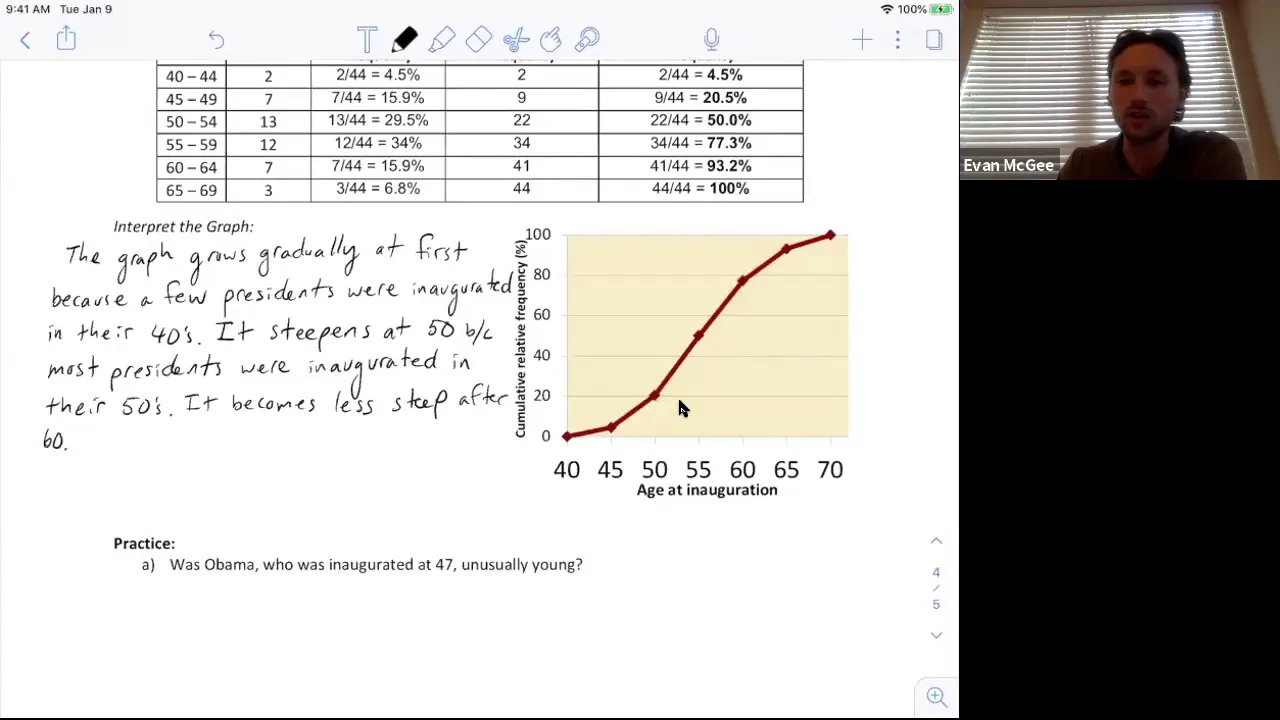 9:41 AM Tue Jan 9
100%
40 – 44 2 2/44 = 4.5% 2 2/44 = 4.5%
45 – 49 7 7/44 = 15.9% 9 9/44 = 20.5%
50 – 54 13 13/44 = 29.5% 22 22/44 = 50.0%
55 – 59 12 12/44 = 34% 34 34/44 = 77.3%
60 – 64 7 7/44 = 15.9% 41 41/44 = 93.2%
65 – 69 3 3/44 = 6.8% 44 44/44 = 100%
Interpret the Graph:
The graph grows gradually at first
because a few presidents were inaugurated
in their 40's. It steepens at 50 b/c
most presidents were inaugurated in
their 50's. It becomes less steep after
60.
Cumulative relative frequency (%)
100
80
60
40
20
0
40 45 50 55 60 65 70
Age at inauguration
Practice:
a) Was Obama, who was inaugurated at 47, unusually young?
4
/
5
Evan McGee